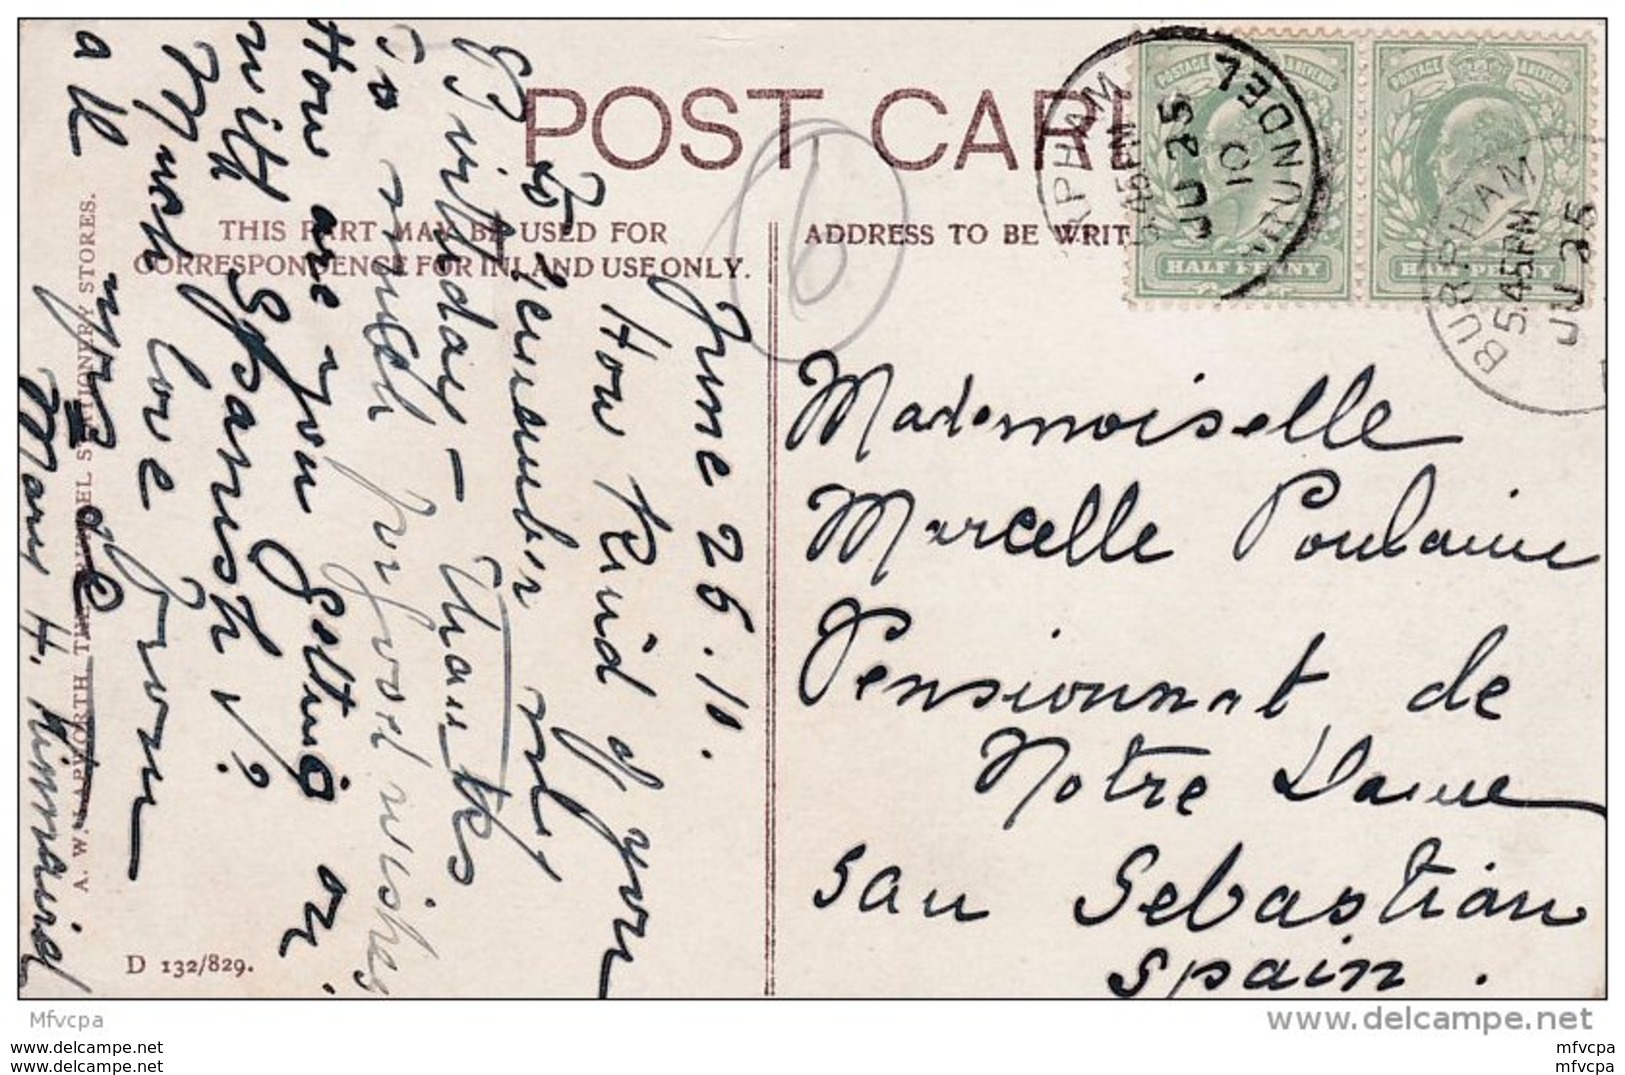 POST CARD
THIS PART MAY BE USED FOR
CORRESPONDENCE FOR INLAND USE ONLY.
ADDRESS TO BE WRIT
POSTAGE & REVENUE
HALF PENNY
POSTAGE & REVENUE
HALF PENNY
BURPHAM
5.45PM
JU 25
10
ARUNDEL
BURPHAM
5.45PM
JU 25
6
June 26.10.
How Kind of you
to remember my
Birthday – Thanks
so much for good wishes
How are you getting on
with Spanish?
Much love from
all
yrs
Mary H. Kinnaird
Mademoiselle
Marcelle Poulaine
Pensionnat de
Notre Dame
San Sebastian
Spain.
A. W. LAPWORTH, THE ARUNDEL STATIONERY STORES.
D 132/829.
Mfvcpa
www.delcampe.net
www.delcampe.com
www.delcampe.net
mfvcpa
mfvcpa